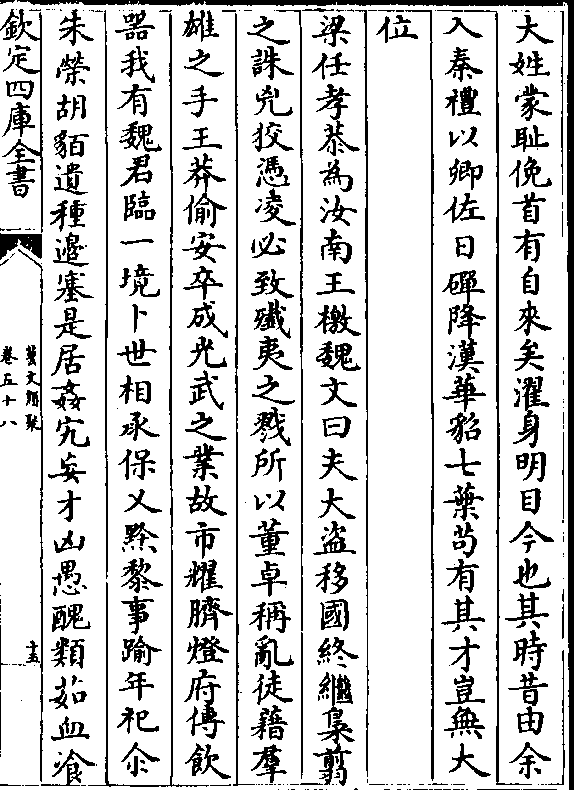 大姓蒙耻俛首有自來矣濯身明目今也其時昔由余
入秦禮以卿佐日磾降漢華貂七葉茍有其才豈無大
位
梁任孝恭為汝南王檄魏文曰夫大盜移國終繼梟翦
之誅兇狡憑凌必致殱夷之戮所以董卓稱亂徒藉羣
雄之手王莽偷安卒成光武之業故市耀臍燈府傳飲
器我有魏君臨一境卜世相承保乂黔黎事踰年祀尒
朱榮胡貊遺種邊塞是居姦宄妄才凶愚醜類茹血飡
欽定四庫全書
藝文類聚
卷五十八
十五